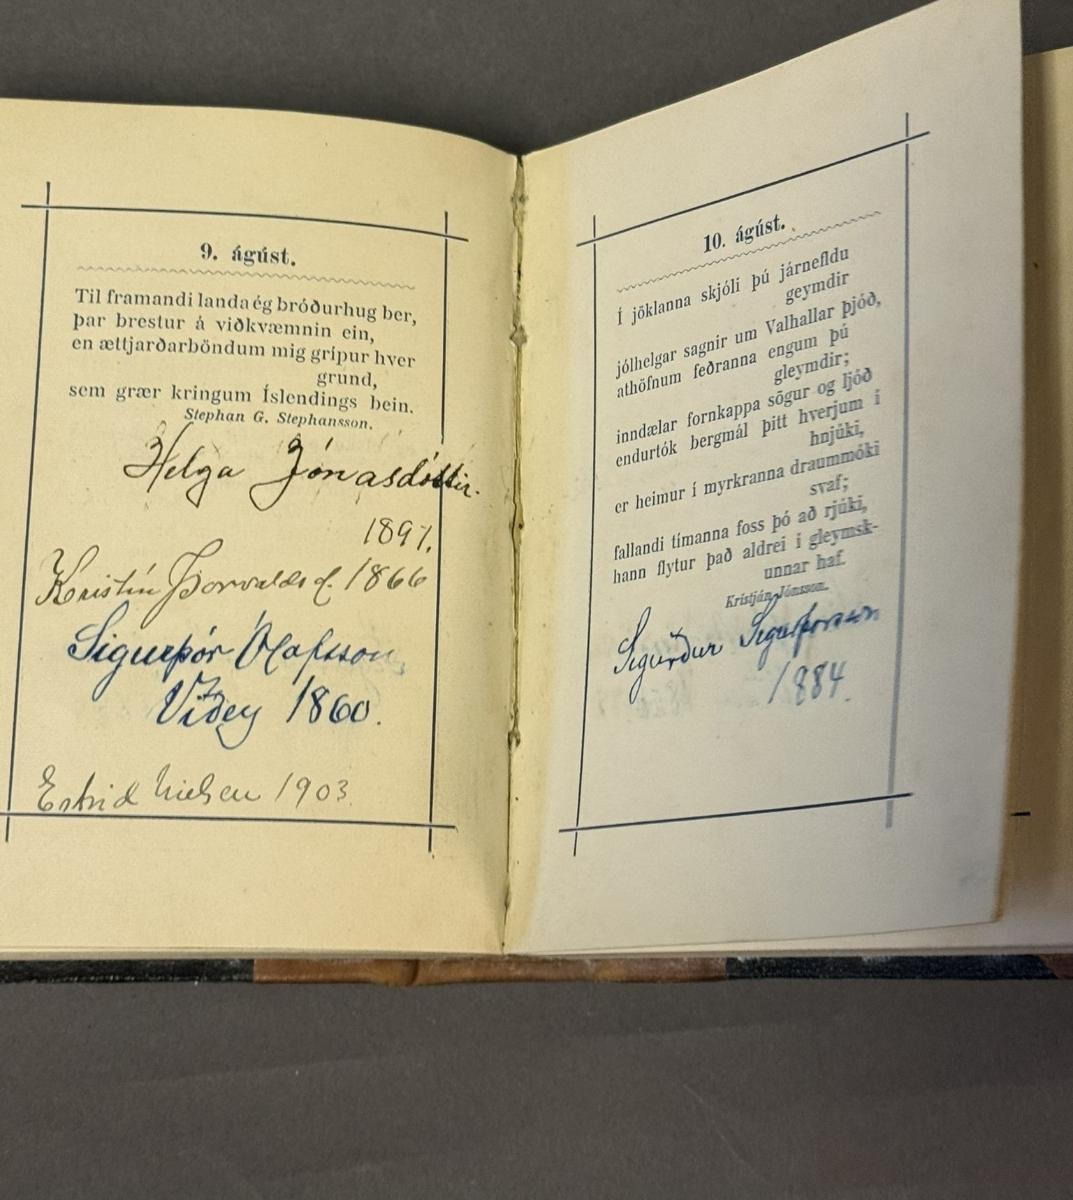 9. ágúst.
Til framandi landa ég bróðurhug ber,
þar brestur á viðkvæmnin ein,
en ættjarðarböndum mig grípur hver
grund,
sem grær kringum Íslendings bein.
Stephan G. Stephansson.
Helga Jónasdóttir.
1897.
Kristín Þorvaldsd. 1866
Sigurþór Ólafsson
Viðey 1860.
Estrid Nielsen 1903
10. ágúst.
Í jöklanna skjóli þú járnefldu
geymdir
jólhelgar sagnir um Valhallar þjóð,
athöfnum feðranna engum þú
gleymdir;
inndælar fornkappa sögur og ljóð
endurtók bergmál þitt hverjum í
hnjúki,
er heimur í myrkranna draummóki
svaf;
fallandi tímanna foss þó að rjúki,
hann flytur það aldrei í gleymsk-
unnar haf.
Kristján Jónsson.
Sigurður Sigurþórsson
1884.